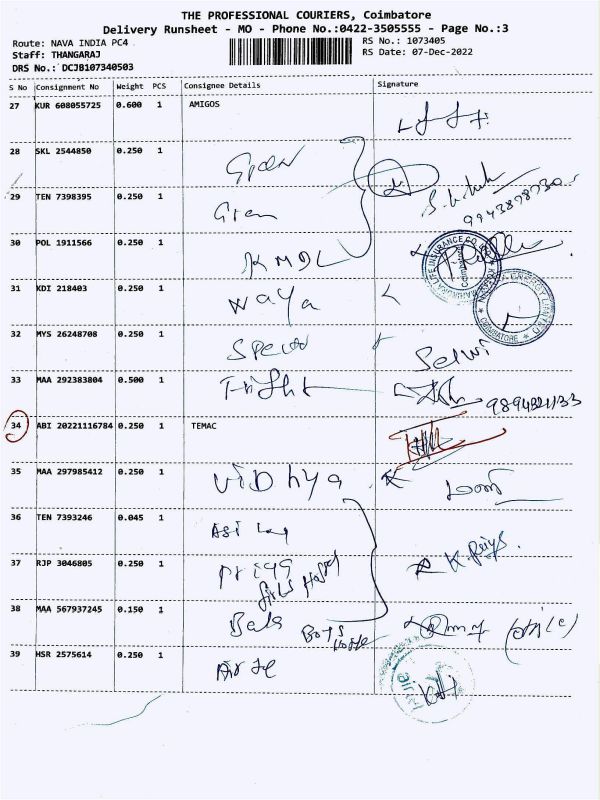 THE PROFESSIONAL COURIERS, Coimbatore
Delivery Runsheet - MO - Phone No.:0422-3505555 - Page No.:3
Route: NAVA INDIA PC4
RS No.: 1073405
Staff: THANGARAJ
RS Date: 07-Dec-2022
DRS No.: DCJB107340503
S No Consignment No Weight PCS Consignee Details Signature
27 KUR 608055725 0.600 1 AMIGOS
28 SKL 2544850 0.250 1
29 TEN 7398395 0.250 1
30 POL 1911566 0.250 1 KMDL
31 KDI 218403 0.250 1 Waya
32 MYS 26248708 0.250 1 Selvi
33 MAA 292383804 0.500 1
34 ABI 20221116784 0.250 1 TEMAC
35 MAA 297985412 0.250 1 Vidhya
36 TEN 7393246 0.045 1
37 RJP 3046805 0.250 1 Priya K. Priya.
Girls Hostel
38 MAA 567937245 0.150 1 Bala
Boys
39 HSR 2575614 0.250 1
LIFE INSURANCE CO.
ENERGY LIMITED
COIMBATORE